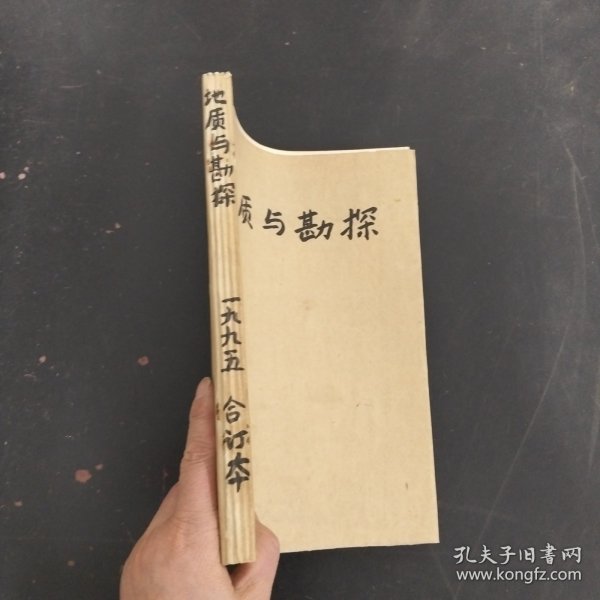 地质与勘探
一九九五
合订本
质与勘探
孔夫子旧書网
www.kongfz.com